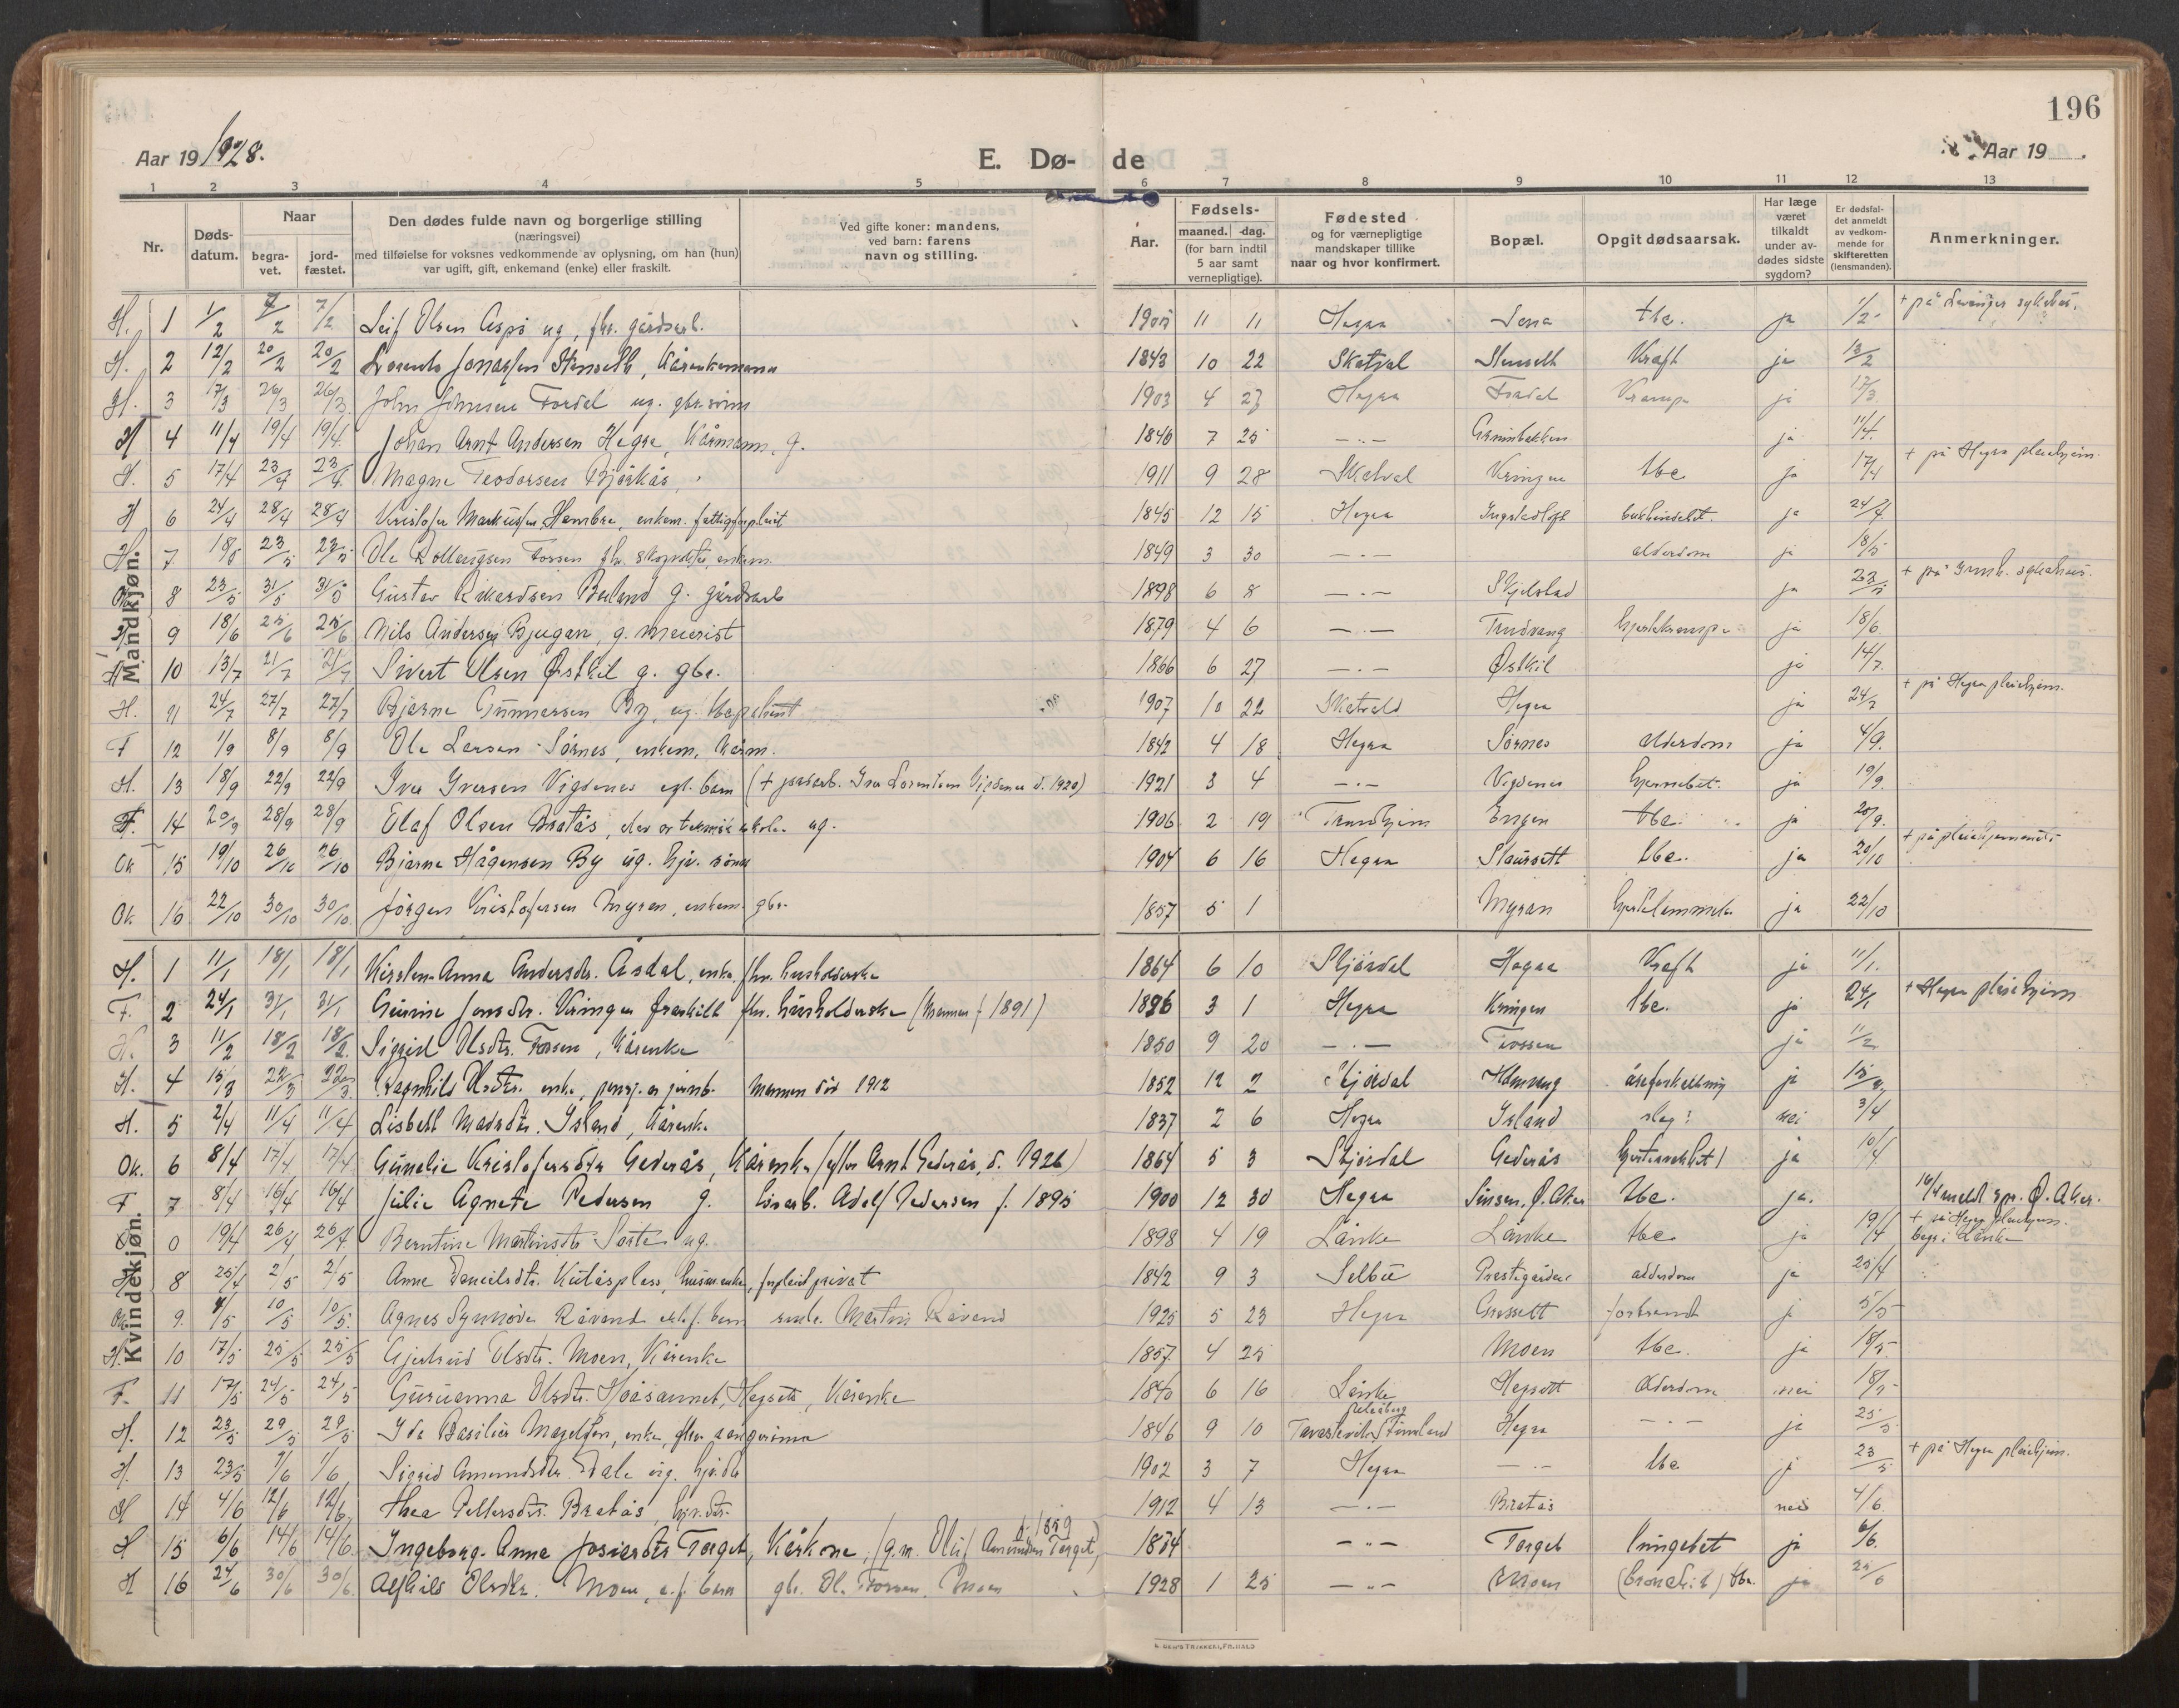 196
Aar 19 1928.
E. Dø-
de
Aar 19
1 2 3 4 5 6 7 8 9 10 11 12 13
Nr.
Døds-
datum.
Naar
begra-
vet.
jord-
fæstet.
Den dødes fulde navn og borgerlige stilling
(næringsvei)
med tilføielse for voksnes vedkommende av oplysning, om han (hun)
var ugift, gift, enkemand (enke) eller fraskilt.
Ved gifte koner: mandens,
ved barn: farens
navn og stilling.
Aar.
Fødsels-
maaned. -dag.
(for barn indtil
5 aar samt
vernepligtige).
Fødested
og for værnepligtige
mandskaper tillike
naar og hvor konfirmert.
Bopæl.
Opgit dødsaarsak.
Har læge
været
tilkaldt
under av-
dødes sidste
sygdom?
Er dødsfal-
det anmeldt
av vedkom-
mende for
skifteretten
(lensmanden).
Anmerkninger.
Mandkjøn.
H. 1 1/2 7/2 7/2 Leif Olsen Aspå ug, fhv. gårdsarb. 1905 11 11 Hegra Sona tbc. ja 1/2 + på Levanger sykehus.
H. 2 12/2 20/2 20/2 Lorents Jonassen Stenseth, kårenkemann 1843 10 22 Skatval Stenseth Kræft ja 13/2
H. 3 17/3 26/3 26/3 John Johnsen Fordal ug. gbr.sønn 1903 4 27 Hegra Fordal Krampe ja 17/3
H 4 11/4 19/4 19/4 Johan Arnt Andersen Hegre, Kårmann, g. 1846 7 25 -"- ja 11/4
H. 5 17/4 23/4 23/4 Magne Teodorsen Bjørkås, 1911 9 28 Skatval Kringen tbc ja 17/4 + på Hegra pleiehjem.
H 6 24/4 28/4 28/4 Kristofer Markussen Hembre, enkem. fattigforpleiet 1845 12 15 Hegra ja 24/4
H. 7. 18/5 23/5 23/5 Ole Fossen fhv. enkem. 1849 3 30 -"- alderdom ja 18/5
Ok 8 23/5 31/5 31/5 Gustav Rikardsen g. gårdsarb 1898 6 8 -"- Skjelstad ja 23/5 + på Trondh. sykehus.
H 9 18/6 25/6 25/6 Nils Andersen Bjugan, g. meierist 1879 4 6 -"- Trudvang hjertekrampe ja 18/6
H 10 13/7 21/7 21/7 Sivert Olsen Østkil g. gbr. 1866 6 27 -"- Østkil ja 14/7
H. 11 24/7 27/7 27/7 Bjarne Gunnarsen By, ug. 1907 10 22 Skatvald Hegra ja 24/7 + på Hegra pleiehjem.
F 12 1/9 8/9 8/9 Ole Larsen Sørnes, enkem, kårm. 1842 4 18 Hegra Sørnes alderdom ja 4/9.
H. 13 18/9 22/9 22/9 Iver Iversen Vigdenes egt. barn (+ Iver Lorentsen Vigdenes d. 1920) 1921 3 4 -"- Vigdenes hjernebet. ja 19/9.
F. 14 20/9 28/9 28/9 Elaf Olsen Bratås, elev av teknisk skole. ug. 1906 2 19 Trondhjem Engen tbc. ja 20/9.
Ok 15 19/10 26/10 26/10 Bjarne Hågensen By ug. hjv. sønn 1904 6 16 Hegra Staursett tbc. ja 20/10
Ok. 16 22/10 30/10 30/10. Jørgen Kristofersen Myran, enkem. gbr. 1857 5 1 Myran hjertelammelse ja 22/10
Kvindekjøn.
H. 1 11/1 18/1 18/1 Kirsten Anna Andersdtr. Åsdal, enke, fhv. husholderske 1864 6 10 Stjørdal Hegra Kræft ja 11/1.
F. 2 24/1 31/1 31/1 Gurine Jonsdtr. Kringen fraskilt fhv. husholderske (Mannen f 1891) 1896 3 1 Hegra Kringen tbc. ja 24/1 + Hegra pleiehjem
H. 3 11/2 18/2 18/2. Sigrid Olsdtr. Fossen, Kårenke 1850 9 20 -"- Fossen ja 11/2
H. 4 15/3 22/3 22/3. Ragnhild Olsdtr. enke, pensj. av jernb. Mannen død 1912 1852 12 2 Stjørdal åreforkalkning ja 15/3
H. 5 2/4 11/4 11/4 Lisbett Madsdtr. Ystand, Kårenke 1837 2 6 Hegra Ystand slag? nei 3/4
Ok. 6 8/4 17/4 17/4 Gunelie Kristofersdtr Gederås, Kårenke (efter Arnt Gederås, d. 1926) 1864 5 3 Stjørdal Gederås ja 10/4
F 7 8/4 16/4 16/4 Julie Agnete Pedersen g. Adolf Pedersen f. 1895 1900 12 30 Hegra Sinsen, Ø. Aker tbc. ja. 16/4 meldt spr. Ø. Aker.
0 19/4 26/4 26/4. Berntine Martinsdtr Sørte ug. 1898 4 19 Lånke Lånke tbc ja 19/4 + på Hegra pleiehjem.
begr. i Lånke
H 8 25/4 2/5 2/5 Anne Danielsdtr. Kulåsplass, husm.enke, forpleiet privat 1842 9 3 Selbu Prestegården alderdom ja 25/4
Ok. 9. 4/5 10/5 10/5. Agnes Synnøve Råvand barn Martin Råvand 1925 5 23 Hegra forbrændt j 5/5
H. 10 17/5 25/5 25/5 Gjertrud Olsdtr. Moen, Kårenke 1857 4 25 Moen tbc. ja 18/5
F. 11 17/5 24/5 24/5 Guruanna Olsdtr. Hegsett, Kårenke 1840 6 16 Lånke Hegsett Alderdom nei 18/5
H. 12 23/5 29/5 29/5 Ida Basilier Magelsen, enke, fhv. sangerinne 1846 9 10 Finnland Hegra -"- ja 25/5
H. 13 23/5 1/6 1/6 Sigrid Amundsdtr. Dale ug. hjv.dtr 1902 3 7 Hegra -"- tbc j 23/5 + på Hegra pleiehjem.
H 14 4/6 12/6 12/6. Thea Pettersdtr. Bratås, hjv.dtr. 1912 4 13 -"- Bratås nei 4/6
d. 1859
H 15 6/6 14/6 14/6. Ingeborg Anna Josiasdtr Torget, Kårkone, (g.m. Oluf Amundsen Torget, 1854 -"- Torget lungebet ja 6/6.
H 16 24/6 30/6 30/6. Alfhild Olsdtr. Moen, e.f. barn gbr. Ole Fossen. Moen 1928 1 25 -"- Moen (bronchit) tbc. ja 25/6